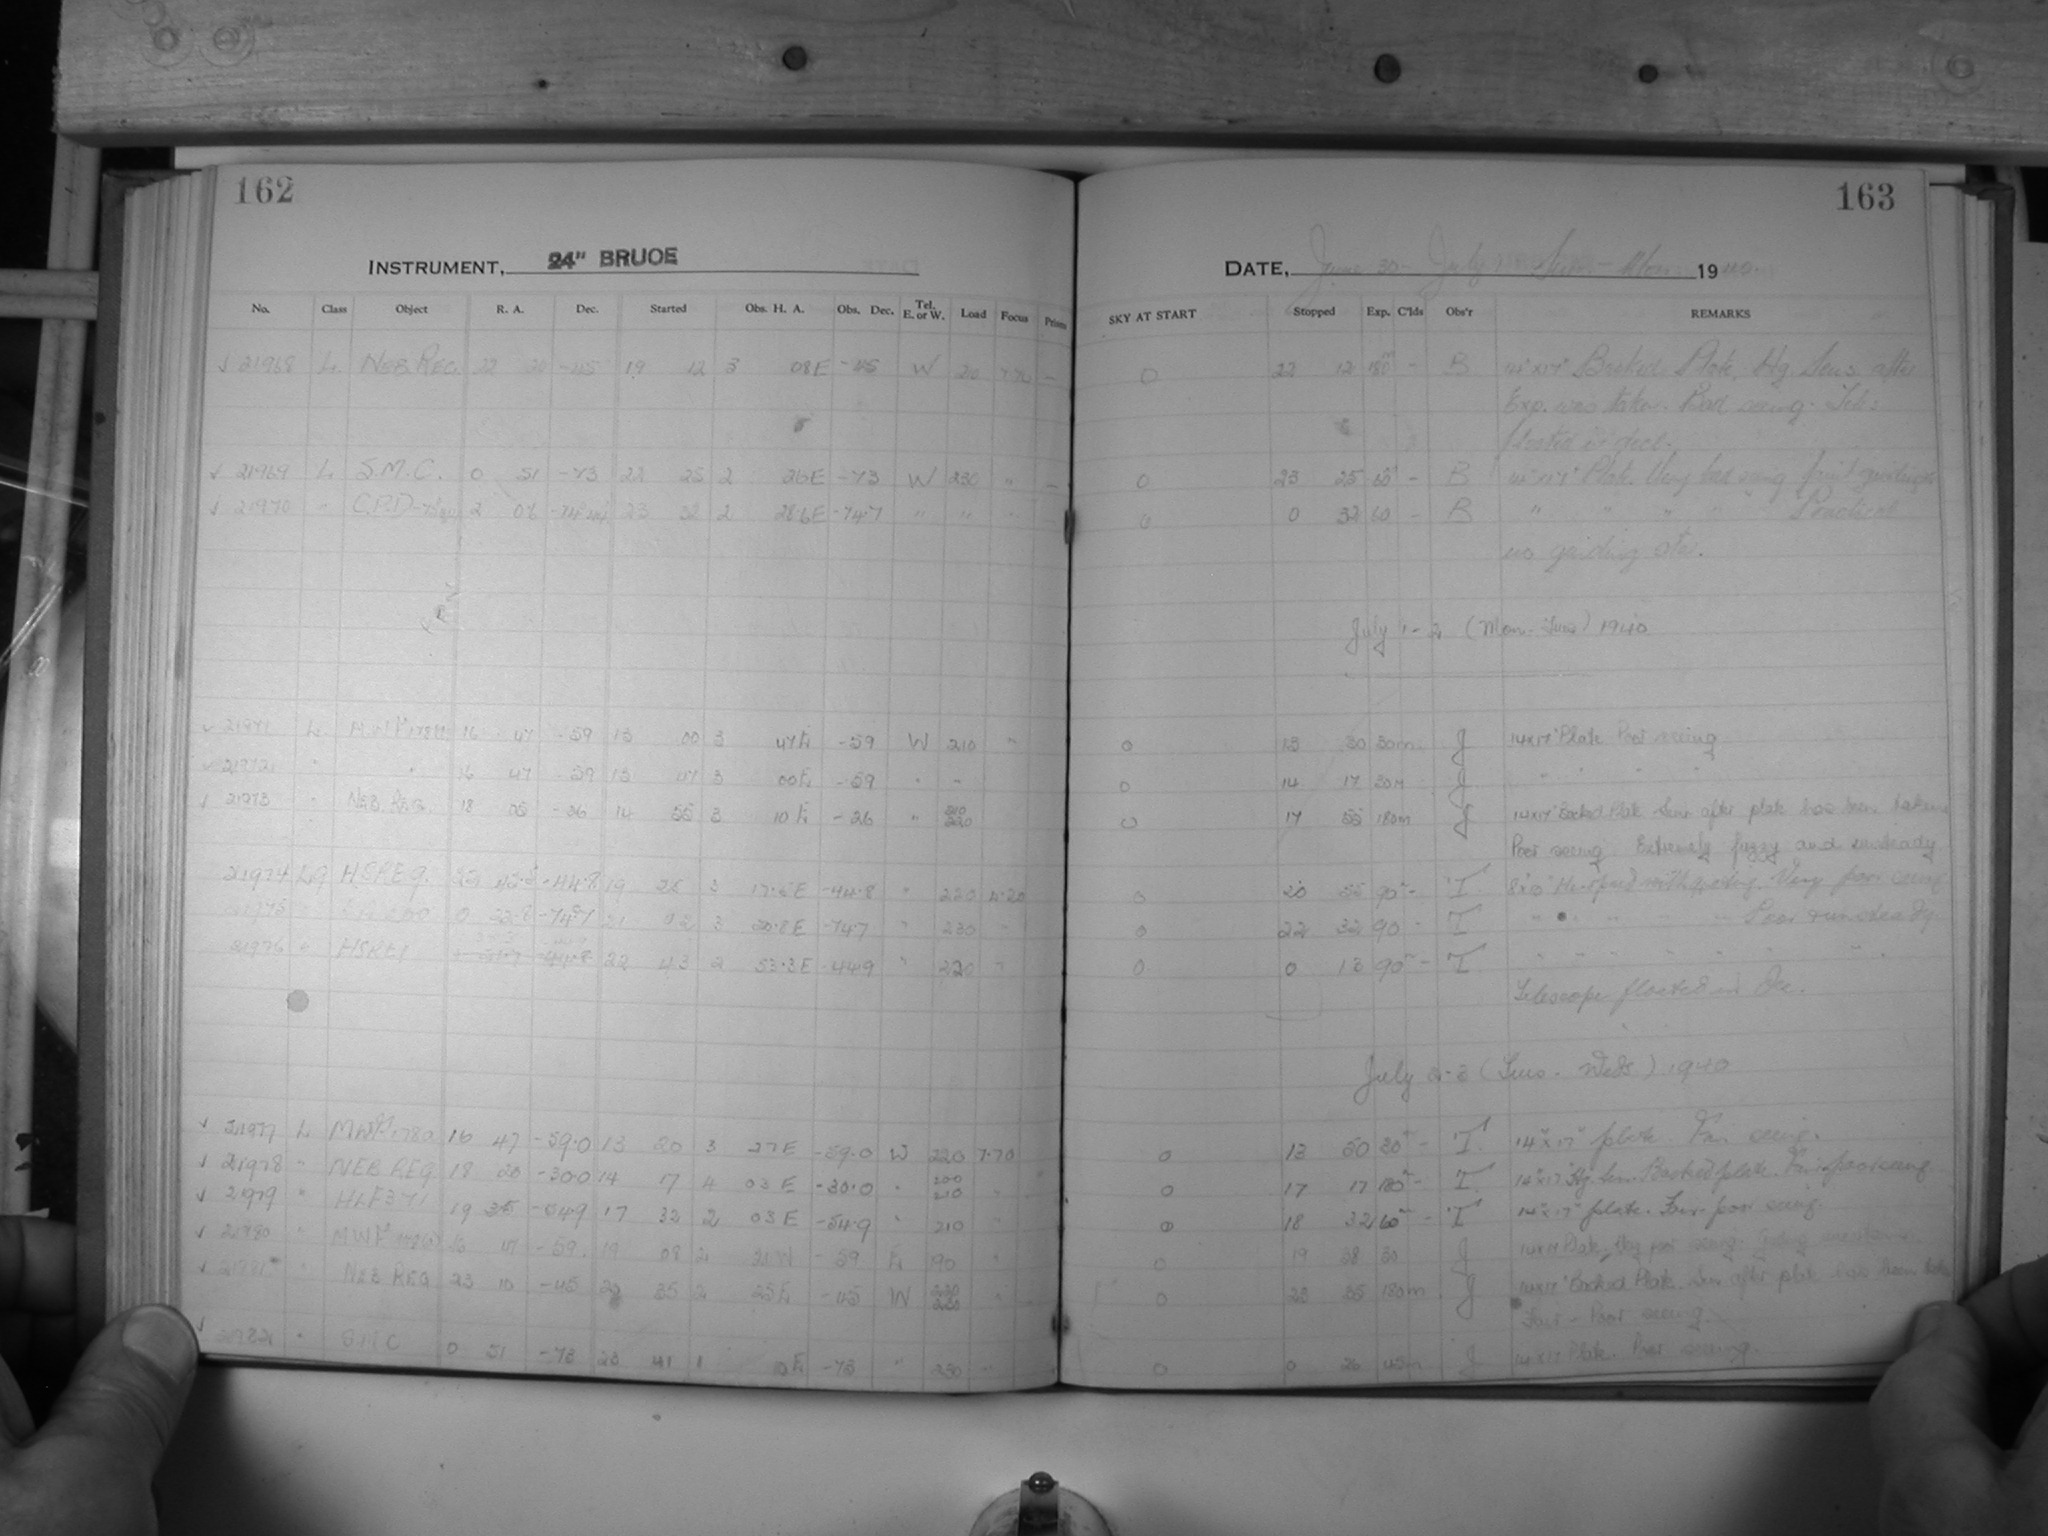 162
163
INSTRUMENT, 24" BRUCE
DATE, June 30 - July 1 Sun - Mon 1940.
No. Class Object R. A. Dec. Started Obs. H. A. Obs. Dec. Tel. E. or W. Load Focus Prism SKY AT START Stopped Exp. C'lds Obs'r REMARKS
21968 L NEB. REG. 22 20 -45 19 12 3 08E -45 W 210 7.70 – 0 22 12 180m - B 14"x17" Backed Plate. Hg. Sens. after
Exp. was taken. Bad seeing. Tel:
floated in decl.
21969 L S.M.C. 0 51 -73 22 25 2 26E -73 W 230 " – 0 23 25 60 - B 14"x17" Plate. Very bad seeing
21970 " C.P.D 2 -74 23 32 2 28.6E -74.7 " " " 0 0 32 60 - B " " " " " Practical
no guiding
July 1-2 (Mon-Tues) 1940
21971 L 16 47 -59 13 00 3 47E -59 W 210 " 0 13 30 30m J 14x17" Plate Poor seeing
21972 " " 16 47 -59 13 47 3 00E -59 " - 0 14 17 30m J " " " "
21973 " NEB. REG. 18 05 -26 14 55 3 10E -26 " 210 220 0 17 55 180m J 14x17" Backed Plate Sens after plate has been taken
Poor seeing. Extremely fuzzy and unsteady
21974 -44.8 19 25 3 17.5E -44.8 " 220 0 20 55 90m - T 8x10" Very poor seeing
21975 0 22.8 -74.7 21 02 3 20.8E -74.7 " 230 " 0 22 32 90 - T " " " " Poor unsteady
21976 " 22 43 2 53.3E -44.9 " 220 " 0 0 13 90m - T " " " " " "
Telescope floated in Dec.
July 2-3 (Tues - Weds) 1940
21977 L 16 47 -59.0 13 20 3 27E -59.0 W 220 7.70 0 13 50 30m - T 14"x17" plate. Fair seeing.
21978 " NEB REG 18 20 -30.0 14 17 4 03E -30.0 " 200 210 " 0 17 17 180m - T 14"x17" Hg. Sens Backed plate. Fair-poor seeing
21979 " HLF371 19 35 -54.9 17 32 2 03E -54.9 " 210 " 0 18 32 60m - T 14"x17" plate. Fair-poor seeing.
21980 " 16 47 -59. 19 08 2 21W -59 E 90 " 0 19 38 30 J 14x17 Plate, Very poor seeing.
21981 " NEB REG 23 10 -45 20 35 2 25E -45 W 220 230 " 0 23 35 180m J 14x17" Backed Plate. Sens after plate has been taken
Fair - Poor seeing.
21982 " SMC 0 51 -73 23 41 1 10E -73 " 230 " 0 0 26 45m J 14x17 Plate. Poor seeing.